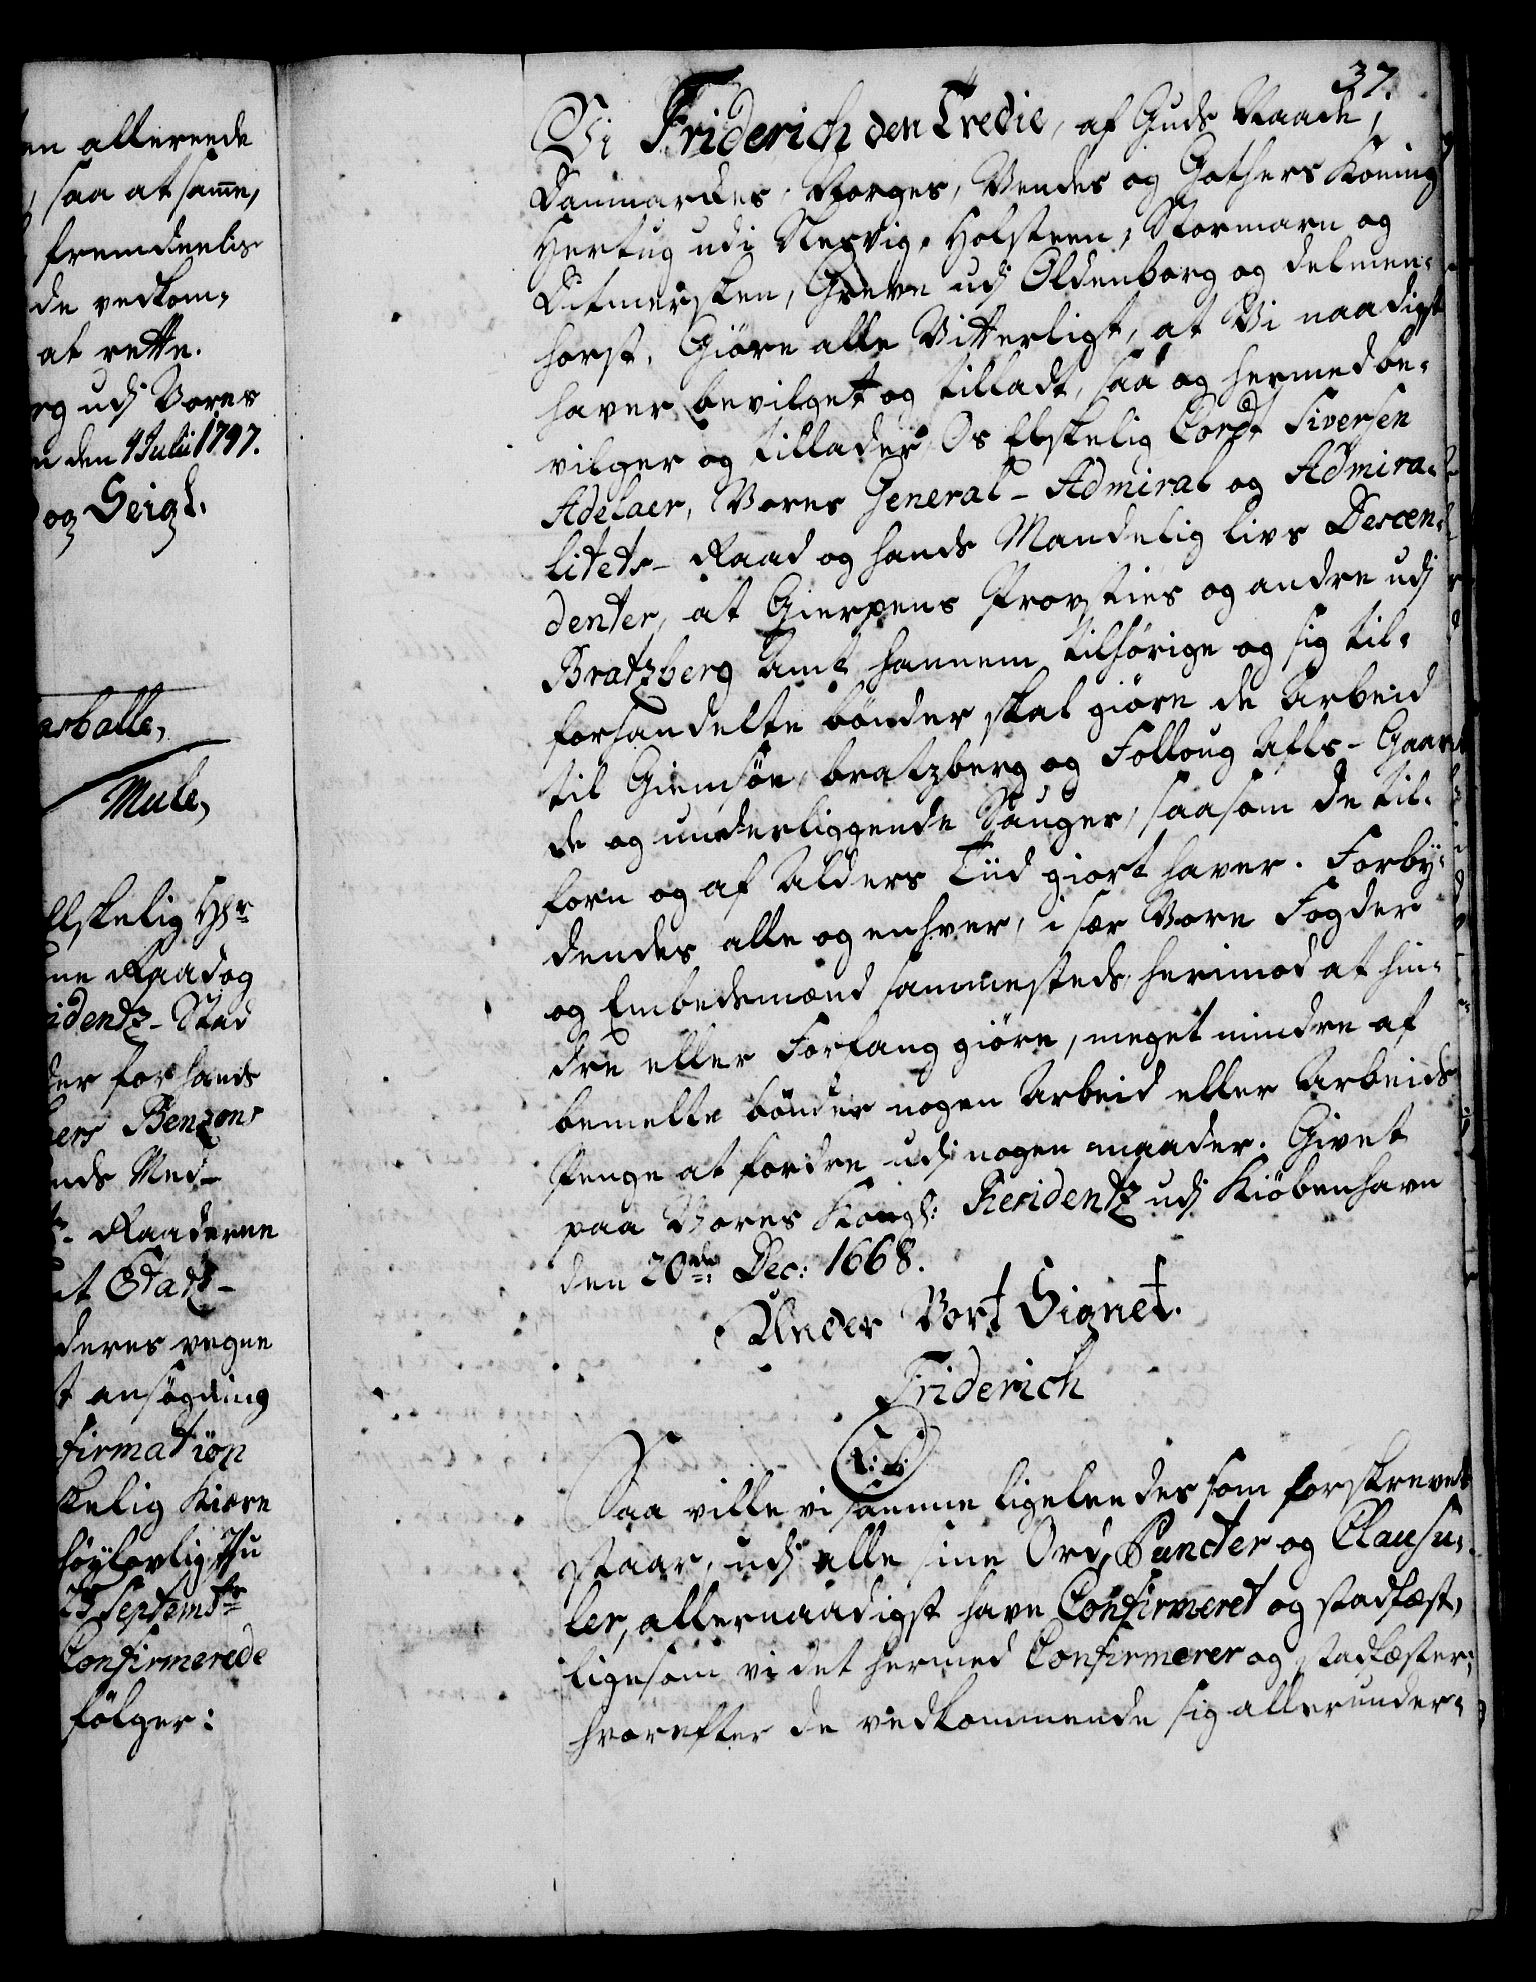 en allereede
saa at samme,
fremdeelis
de vedkom-
at rette.
rg udj Vores
n den 4 Julii 1747.
og Seigl.
asballe,
Mule,
Elskelig Hr
ne Raad og
identz-Stad
der for hands
ers Benzons
nds Med-
Raaderne
t Etats-
deres vegne
t ansøgning
firmation
kelig Kiære
høylovlig Ihu
23 Septembr
Confirmerede
følger:
37.
Vi Friderich den Tredie, af Guds Naade,
Danmarckes, Norges, Vendes og Gothers Koning
Hertug udi Slesvig, Holsteen, Stormarn og
Ditmersken, Greve udj Oldenborg og Delmen-
horst, Giøre alle Vitterligt, at Vi naadigst
haver bevilget og tilladt, saa og hermed be-
vilger og tillader Os Elskelig Cordt Siversen
Adelaer, Vores General-Admiral og Admira-
litets-Raad og hands Mandelig livs Descen-
denter, at Gierpens Prousties og andre udj
Bratzberg Amt hannem tilhørige og sig til-
forhandelte bønder skal giøre de Arbeid
til Giemsøe, bratzberg og Folloug Afls-Gaar-
de og underliggende Sauger, saasom de til-
forn og af Alders Tiid giort haver. Forby-
dendes alle og enhver, i sær Vore Fogder
og Embedsmænd sammesteds, herimod at hin-
dre eller Forfang giøre, meget mindre af
bemelte bønder nogen Arbeid eller Arbeids
Penge at fordre udj nogen maader. Givet
paa Vores Kongl: Residentz udj Kiøbenhavn
den 20de Dec: 1668.
Under Vort Signet.
Friderich
(L: S:)
Saa ville vi samme ligeleedes som forskrevet
staar, udj alle sine Ord, Puncter og Clausu-
ler, allernaadigst have Confirmeret og stadfæst,
ligesom vi det hermed Confirmerer og stadfæster;
hvorefter de vedkommende sig allerunder-